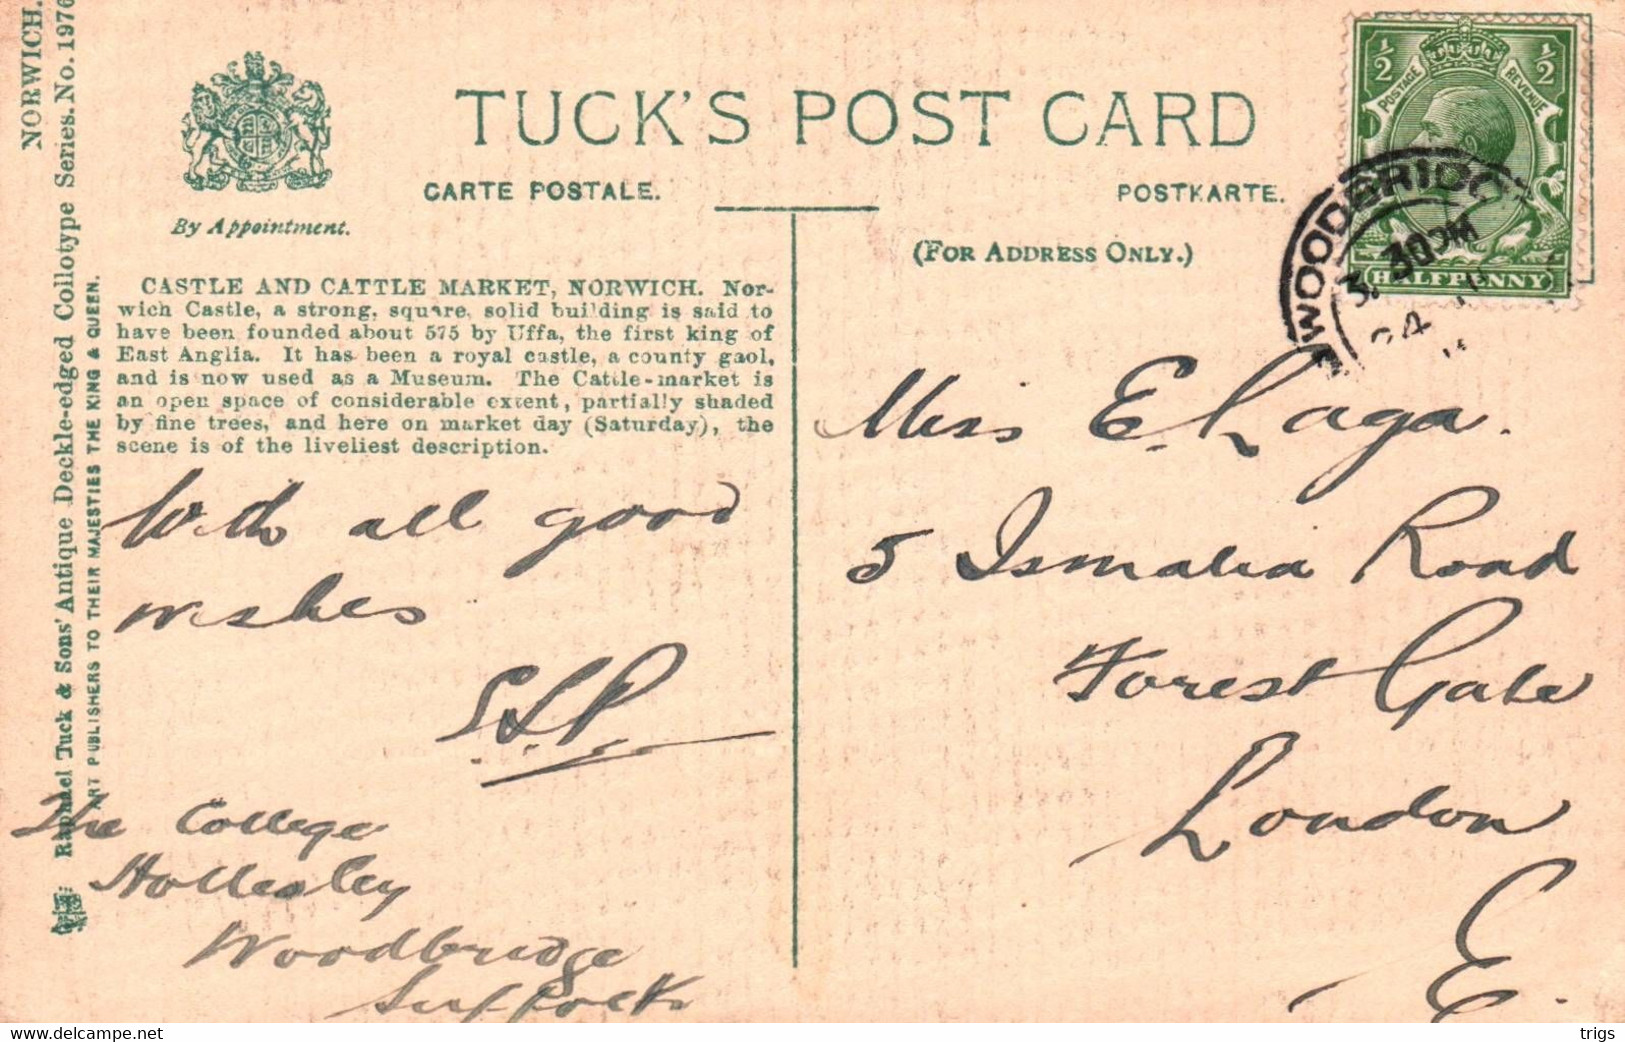 NORWICH.
Raphael Tuck & Sons' Antique Deckle-edged Collotype Series. No. 1976
ART PUBLISHERS TO THEIR MAJESTIES THE KING & QUEEN.
By Appointment.
TUCK'S POST CARD
CARTE POSTALE.
POSTKARTE.
(FOR ADDRESS ONLY.)
CASTLE AND CATTLE MARKET, NORWICH. Nor-
wich Castle, a strong, square, solid building is said to
have been founded about 575 by Uffa, the first king of
East Anglia. It has been a royal castle, a county gaol,
and is now used as a Museum. The Cattle-market is
an open space of considerable extent, partially shaded
by fine trees, and here on market day (Saturday), the
scene is of the liveliest description.
With all good
wishes
The College
Hollesley
Woodbridge
Suffolk
½ ½
POSTAGE REVENUE
HALFPENNY
WOODBRIDGE
30PM
24
Miss E. Laga.
5 Ismalia Road
Forest Gate
London
E.
delcampe.net
trigs